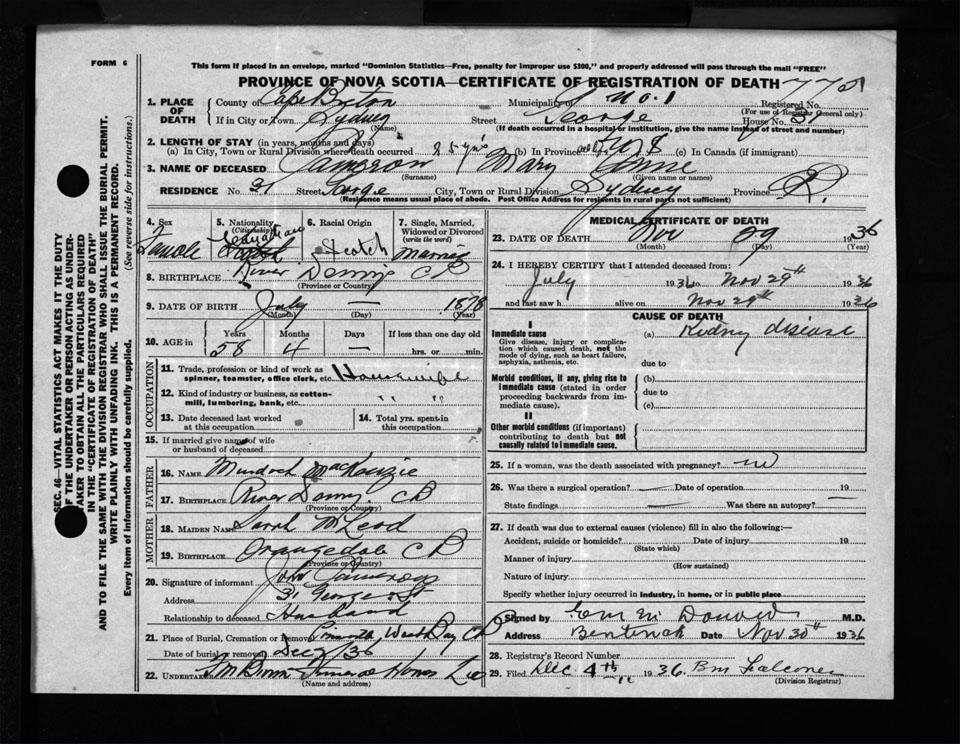 FORM 6
This form if placed in an envelope, marked "Dominion Statistics—Free, penalty for improper use $300," and properly addressed will pass through the mail "FREE"
PROVINCE OF NOVA SCOTIA—CERTIFICATE OF REGISTRATION OF DEATH
1. PLACE OF DEATH { County of Cape Breton Municipality of No. 1 Registered No.
(For use of Registrar General only)
If in City or Town Sydney Street George House No. 31
(Name) (If death occurred in a hospital or institution, give the name instead of street and number)
2. LENGTH OF STAY (in years, months and days)
(a) In City, Town or Rural Division where death occurred 25 yrs (b) In Province (c) In Canada (if immigrant)
3. NAME OF DECEASED Cameron Mary Anne
(Surname) (Given name or names)
RESIDENCE No. 31 Street George City, Town or Rural Division Sydney Province
(Residence means usual place of abode. Post Office Address for residents in rural parts not sufficient)
4. Sex 5. Nationality (Citizenship) 6. Racial Origin 7. Single, Married, Widowed or Divorced (write the word)
Female Canadian Scotch Married
8. BIRTHPLACE River Dennys C B
(Province or Country)
9. DATE OF BIRTH July — 1878
(Month) (Day) (Year)
10. AGE in { Years Months Days If less than one day old
58 4 — hrs. or min.
OCCUPATION
11. Trade, profession or kind of work as spinner, teamster, office clerk, etc. Housewife
12. Kind of industry or business, as cotton-mill, lumbering, bank, etc. " "
13. Date deceased last worked at this occupation 14. Total yrs. spent in this occupation
15. If married give name of wife or husband of deceased
FATHER
16. NAME Murdoch MacKenzie
17. BIRTHPLACE River Dennys C B
(Province or Country)
MOTHER
18. MAIDEN NAME Sarah McLeod
19. BIRTHPLACE Orangedale C B
(Province or Country)
20. Signature of informant John Cameron
Address 31 George St
Relationship to deceased Husband
21. Place of Burial, Cremation or Removal West Bay C B
Date of burial or removal Dec 36
22. UNDERTAKER Funeral Home
(Name and address)
MEDICAL CERTIFICATE OF DEATH
23. DATE OF DEATH Nov 29 1936
(Month) (Day) (Year)
24. I HEREBY CERTIFY that I attended deceased from:
July 1936 to Nov 29th 1936
and last saw h alive on Nov 29th 1936
CAUSE OF DEATH
I
Immediate cause (a) Kidney disease
Give disease, injury or complication which caused death, not the mode of dying, such as heart failure, asphyxia, asthenia, etc.
due to
Morbid conditions, if any, giving rise to immediate cause (stated in order proceeding backwards from immediate cause). (b)
due to
(c)
II
Other morbid conditions (if important) contributing to death but not causally related to immediate cause.
25. If a woman, was the death associated with pregnancy? no
26. Was there a surgical operation? — Date of operation 19
State findings — Was there an autopsy? —
27. If death was due to external causes (violence) fill in also the following:—
Accident, suicide or homicide? Date of injury 19
(State which)
Manner of injury
(How sustained)
Nature of injury
Specify whether injury occurred in industry, in home, or in public place
Signed by M.D.
Address Bentinck Date Nov 30th 1936
28. Registrar's Record Number
29. Filed Dec. 4th 1936. Falconer
(Division Registrar)
SEC. 46—VITAL STATISTICS ACT MAKES IT THE DUTY
OF THE UNDERTAKER OR PERSON ACTING AS UNDER-
TAKER TO OBTAIN ALL THE PARTICULARS REQUIRED
IN THE "CERTIFICATE OF REGISTRATION OF DEATH"
AND TO FILE THE SAME WITH THE DIVISION REGISTRAR WHO SHALL ISSUE THE BURIAL PERMIT.
WRITE PLAINLY WITH UNFADING INK. THIS IS A PERMANENT RECORD.
Every item of information should be carefully supplied. (See reverse side for instructions.)